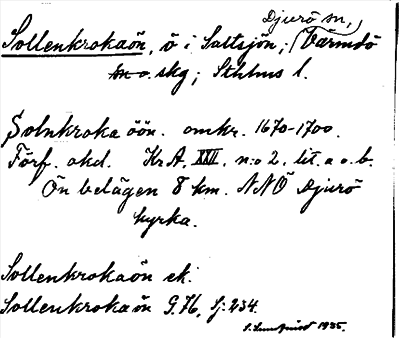 Sollenkrokaön, ö i Saltsjön; Djurö sn, Värmdö
sn o. skg; Sthlms l.
Solnkroka öön. omkr. 1670-1700.
Förf. okd. Kr A. XXII, n:o 2, lit. a o. b.
Ön belägen 8 km. NNÖ Djurö
kyrka.
Sollenkrokaön ek.
Sollenkrokaön G.76, Sj: 234.
1935.